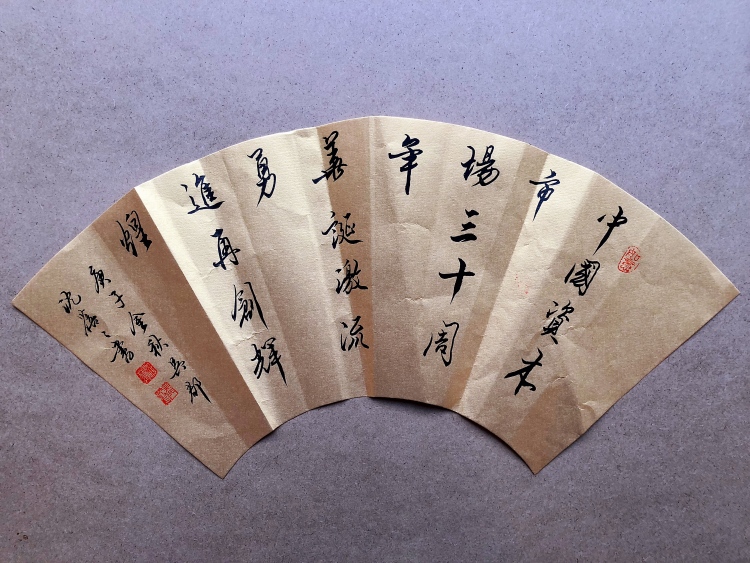 中國資本
市
場三十周
年
華誕激流
勇
進再創輝
煌
庚子金秋吳郡
沈書